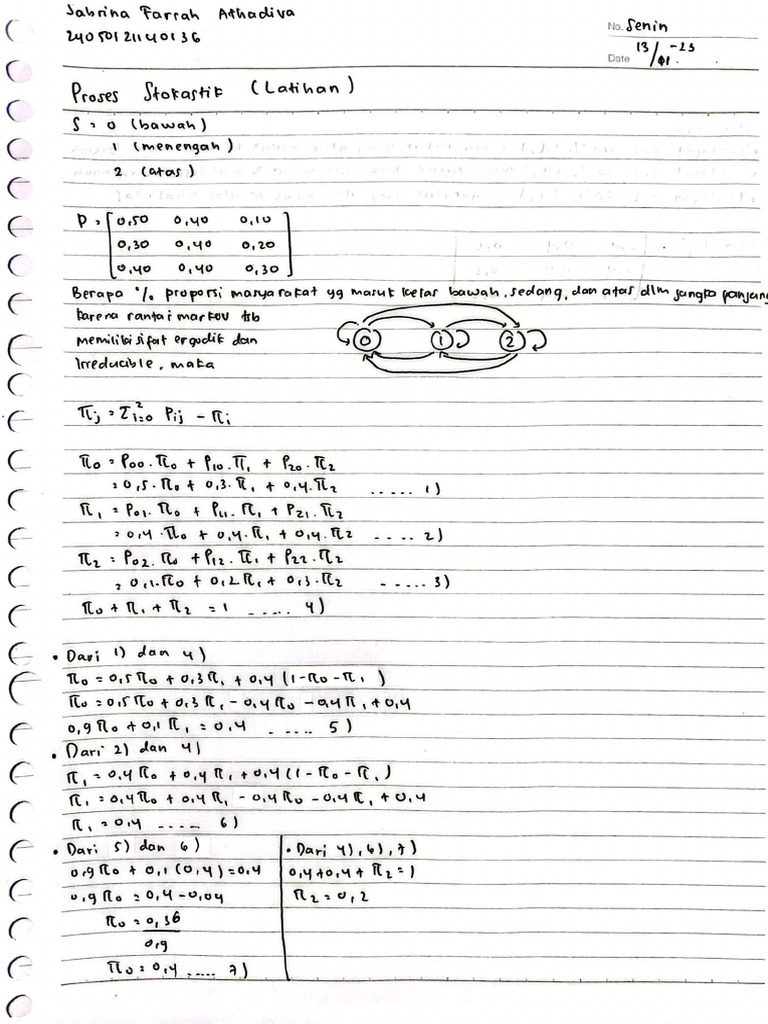 Sabrina Farrah Athadiva
24050121140136
No. Senin
Date 13/01 -23
Proses Stokastik (Latihan)
S = 0 (bawah)
1 (menengah)
2 (atas)
P = [0,50 0,40 0,10
0,30 0,40 0,20
0,40 0,40 0,30]
Berapa % proporsi masyarakat yg masuk kelas bawah, sedang, dan atas dlm jangka panjang
karena rantai markov tsb
memiliki sifat ergodik dan
Irreducible, maka
0 1 2
πj = Σ²i=0 Pij - πi
π0 = P00.π0 + P10.π1 + P20.π2
= 0,5.π0 + 0,3.π1 + 0,4.π2 ..... 1)
π1 = P01.π0 + P11.π1 + P21.π2
= 0,4.π0 + 0,4.π1 + 0,4.π2 .... 2)
π2 = P02.π0 + P12.π1 + P22.π2
= 0,1.π0 + 0,2π1 + 0,3.π2 ..... 3)
π0 + π1 + π2 = 1 ..... 4)
• Dari 1) dan 4)
π0 = 0,5π0 + 0,3π1 + 0,4(1-π0-π1)
π0 = 0,5π0 + 0,3π1 - 0,4π0 - 0,4π1 + 0,4
0,9π0 + 0,1π1 = 0,4 ..... 5)
• Dari 2) dan 4)
π1 = 0,4π0 + 0,4π1 + 0,4(1-π0-π1)
π1 = 0,4π0 + 0,4π1 - 0,4π0 - 0,4π1 + 0,4
π1 = 0,4 .... 6)
• Dari 5) dan 6)
0,9π0 + 0,1(0,4) = 0,4
0,9π0 = 0,4 - 0,04
π0 = 0,36
0,9
π0 = 0,4 .... 7)
• Dari 4), 6), 7)
0,4 + 0,4 + π2 = 1
π2 = 0,2